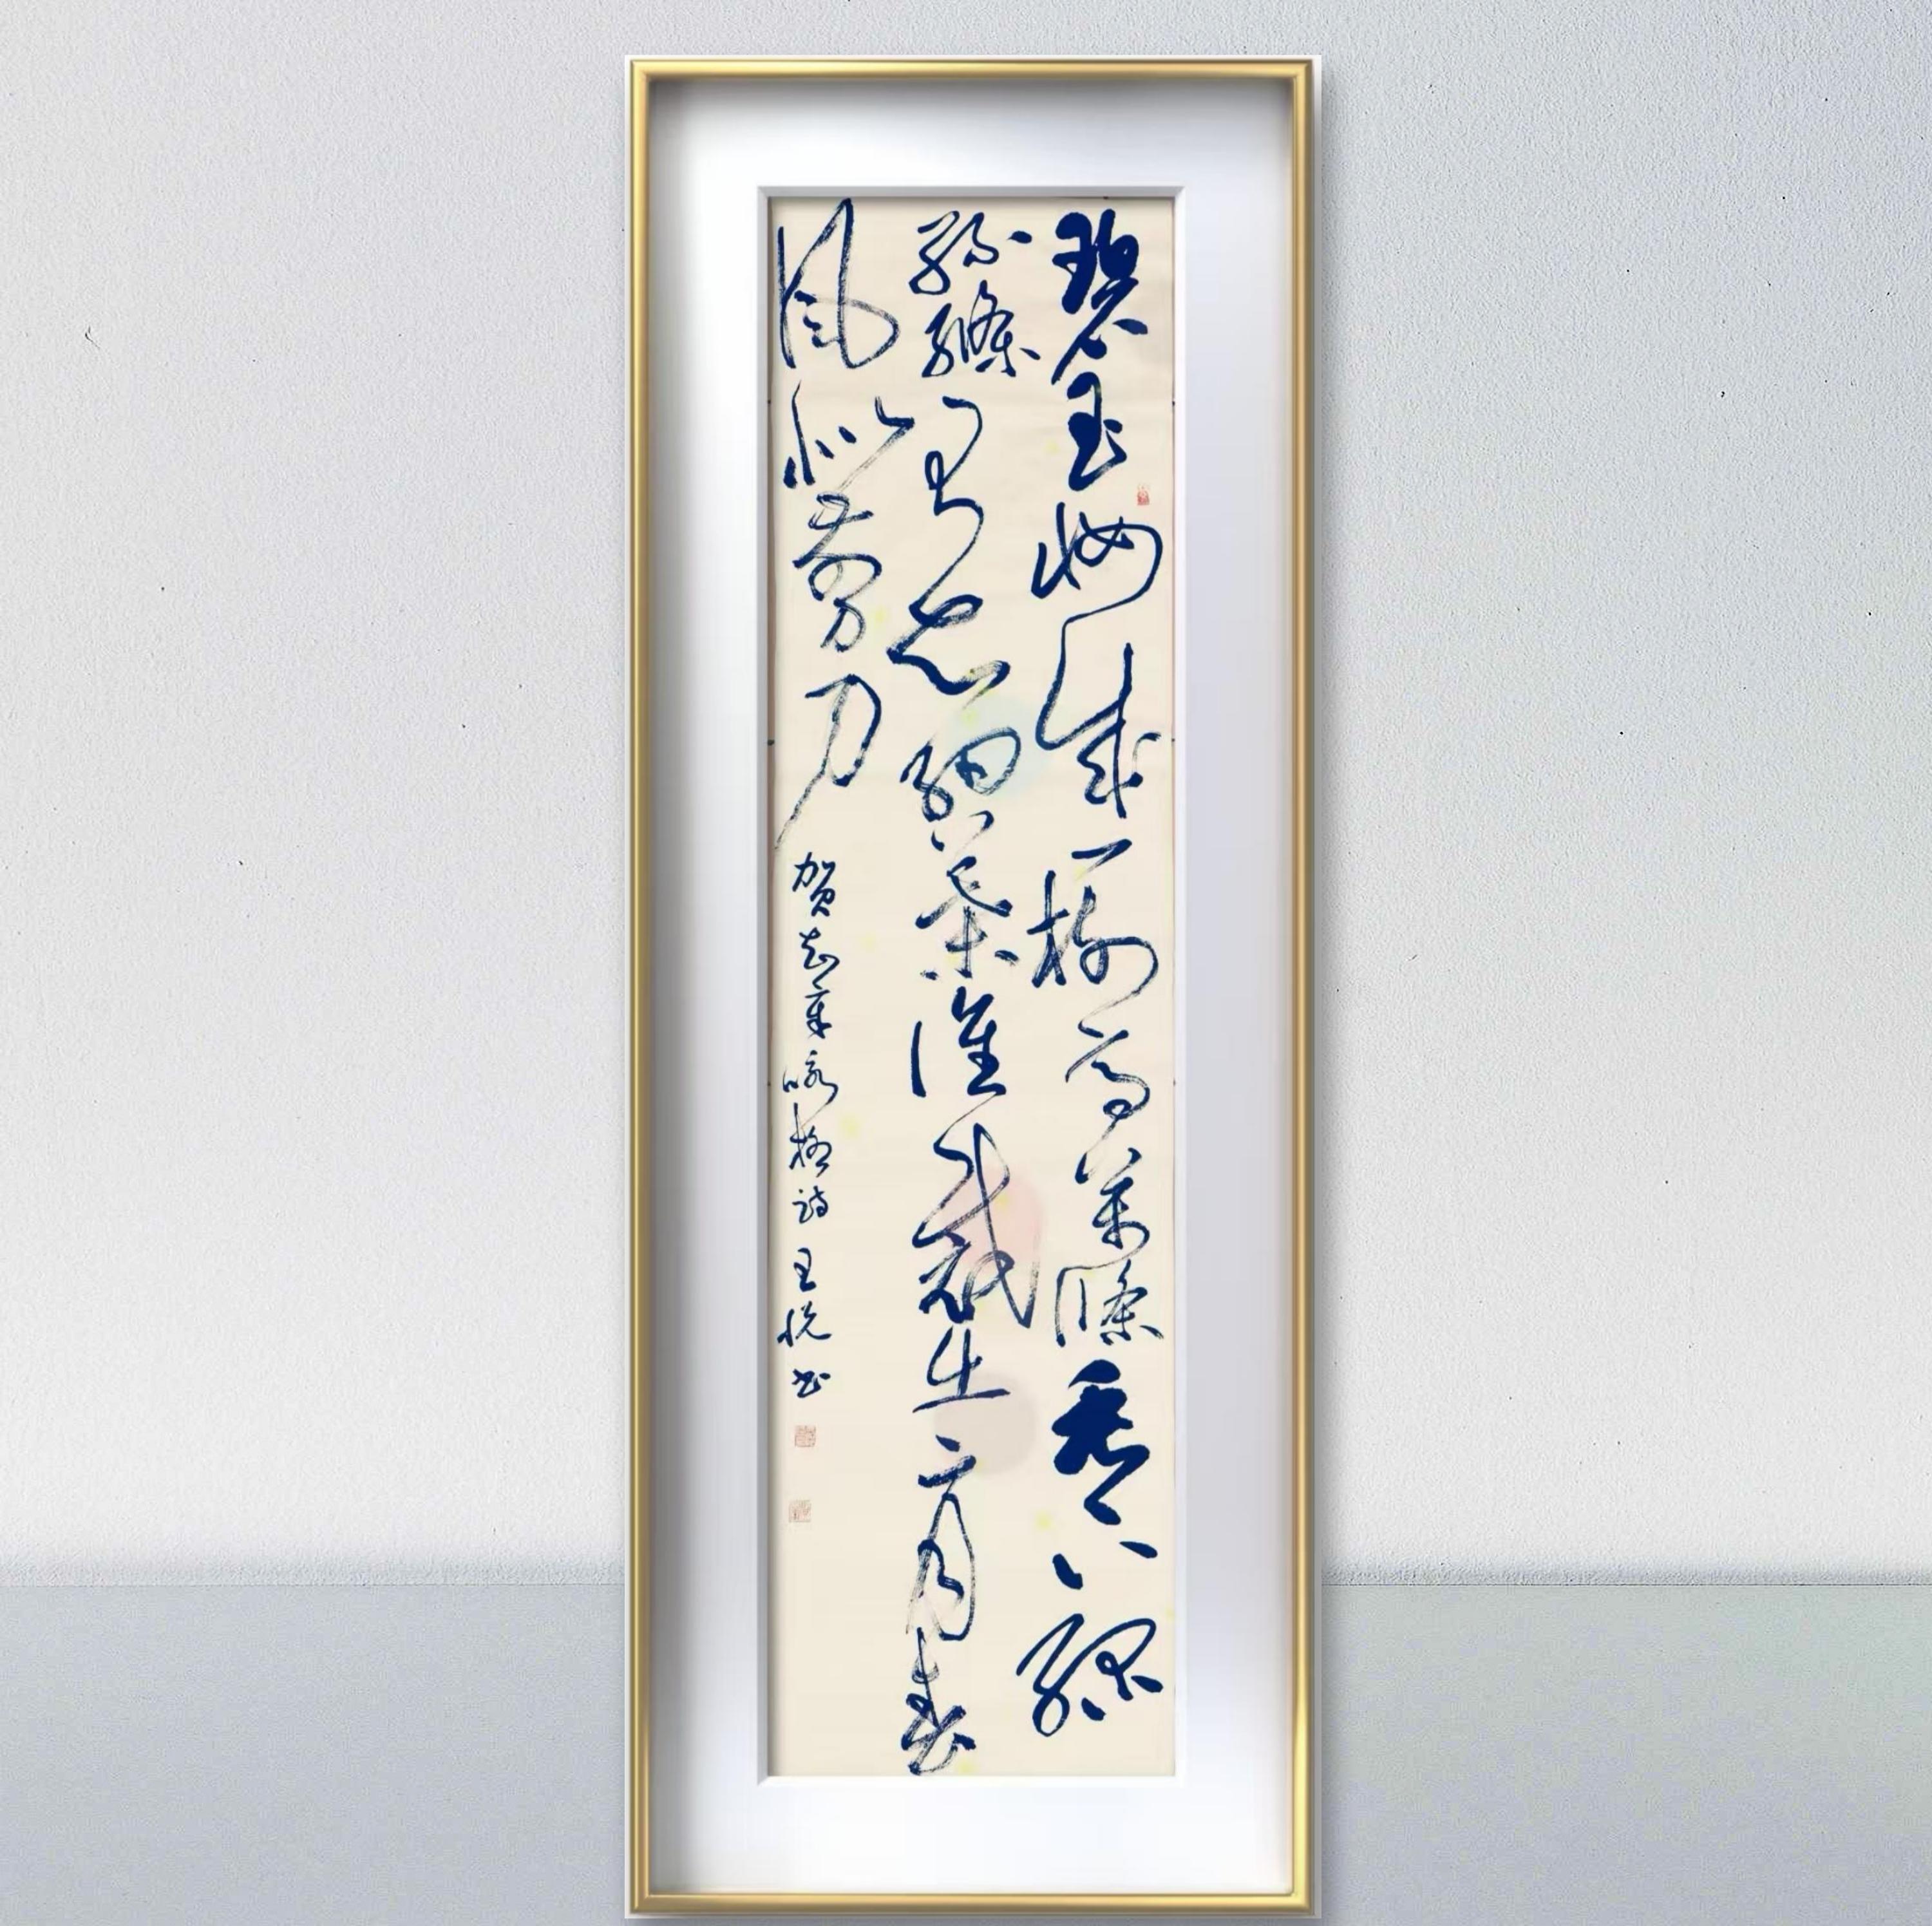 碧玉妝成一樹高萬條垂下綠
絲絛不知細葉誰裁出二月春
風似剪刀
賀知章咏柳詩 王悦書